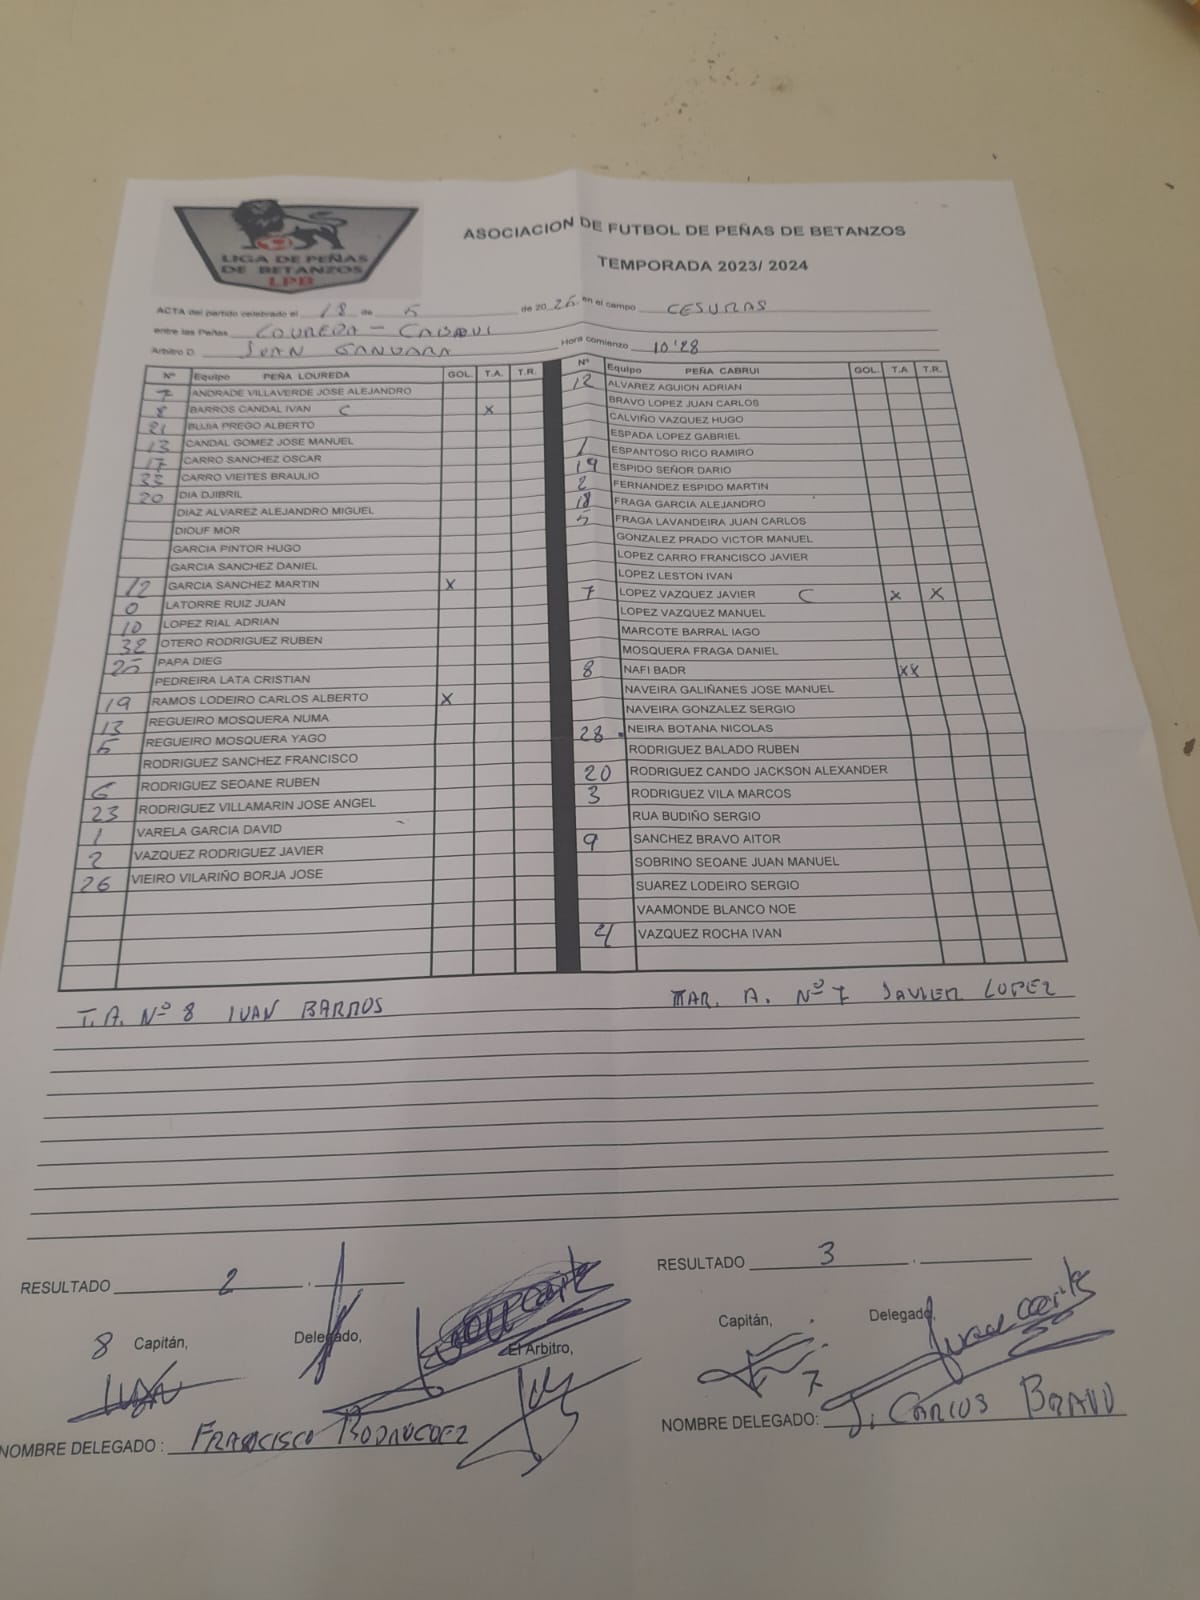 LIGA DE PEÑAS
DE BETANZOS
LPB
ASOCIACION DE FUTBOL DE PEÑAS DE BETANZOS
TEMPORADA 2023/ 2024
ACTA del partido celebrado el 18 de 5 de 20 en el campo CESURAS
entre las Peñas LOUREDA - CABRUI
Arbitro D. JUAN GANDARA Hora comienzo 10'28
Nº Equipo PEÑA LOUREDA GOL. T.A. T.R.
7 ANDRADE VILLAVERDE JOSE ALEJANDRO
8 BARROS CANDAL IVAN C X
21 BUJIA PREGO ALBERTO
13 CANDAL GOMEZ JOSE MANUEL
17 CARRO SANCHEZ OSCAR
33 CARRO VIEITES BRAULIO
20 DIA DJIBRIL
DIAZ ALVAREZ ALEJANDRO MIGUEL
DIOUF MOR
GARCIA PINTOR HUGO
GARCIA SANCHEZ DANIEL
12 GARCIA SANCHEZ MARTIN X
0 LATORRE RUIZ JUAN
10 LOPEZ RIAL ADRIAN
32 OTERO RODRIGUEZ RUBEN
25 PAPA DIEG
PEDREIRA LATA CRISTIAN
19 RAMOS LODEIRO CARLOS ALBERTO X
13 REGUEIRO MOSQUERA NUMA
5 REGUEIRO MOSQUERA YAGO
RODRIGUEZ SANCHEZ FRANCISCO
6 RODRIGUEZ SEOANE RUBEN
23 RODRIGUEZ VILLAMARIN JOSE ANGEL
1 VARELA GARCIA DAVID
2 VAZQUEZ RODRIGUEZ JAVIER
26 VIEIRO VILARIÑO BORJA JOSE
Nº Equipo PEÑA CABRUI GOL. T.A T.R.
12 ALVAREZ AGUION ADRIAN
BRAVO LOPEZ JUAN CARLOS
CALVIÑO VAZQUEZ HUGO
ESPADA LOPEZ GABRIEL
1 ESPANTOSO RICO RAMIRO
19 ESPIDO SEÑOR DARIO
2 FERNANDEZ ESPIDO MARTIN
18 FRAGA GARCIA ALEJANDRO
5 FRAGA LAVANDEIRA JUAN CARLOS
GONZALEZ PRADO VICTOR MANUEL
LOPEZ CARRO FRANCISCO JAVIER
LOPEZ LESTON IVAN
7 LOPEZ VAZQUEZ JAVIER C X X
LOPEZ VAZQUEZ MANUEL
MARCOTE BARRAL IAGO
MOSQUERA FRAGA DANIEL
8 NAFI BADR XX
NAVEIRA GALIÑANES JOSE MANUEL
NAVEIRA GONZALEZ SERGIO
28 NEIRA BOTANA NICOLAS
RODRIGUEZ BALADO RUBEN
20 RODRIGUEZ CANDO JACKSON ALEXANDER
3 RODRIGUEZ VILA MARCOS
RUA BUDIÑO SERGIO
9 SANCHEZ BRAVO AITOR
SOBRINO SEOANE JUAN MANUEL
SUAREZ LODEIRO SERGIO
VAAMONDE BLANCO NOE
4 VAZQUEZ ROCHA IVAN
T.A. Nº 8 IVAN BARROS
TAR. A. Nº 7 JAVIER LOPEZ
RESULTADO 2 .
RESULTADO 3 .
8 Capitán, Delegado, El Arbitro,
Capitán, Delegado,
7
NOMBRE DELEGADO : FRANCISCO RODRIGUEZ
NOMBRE DELEGADO: J. CARLOS BRAVO